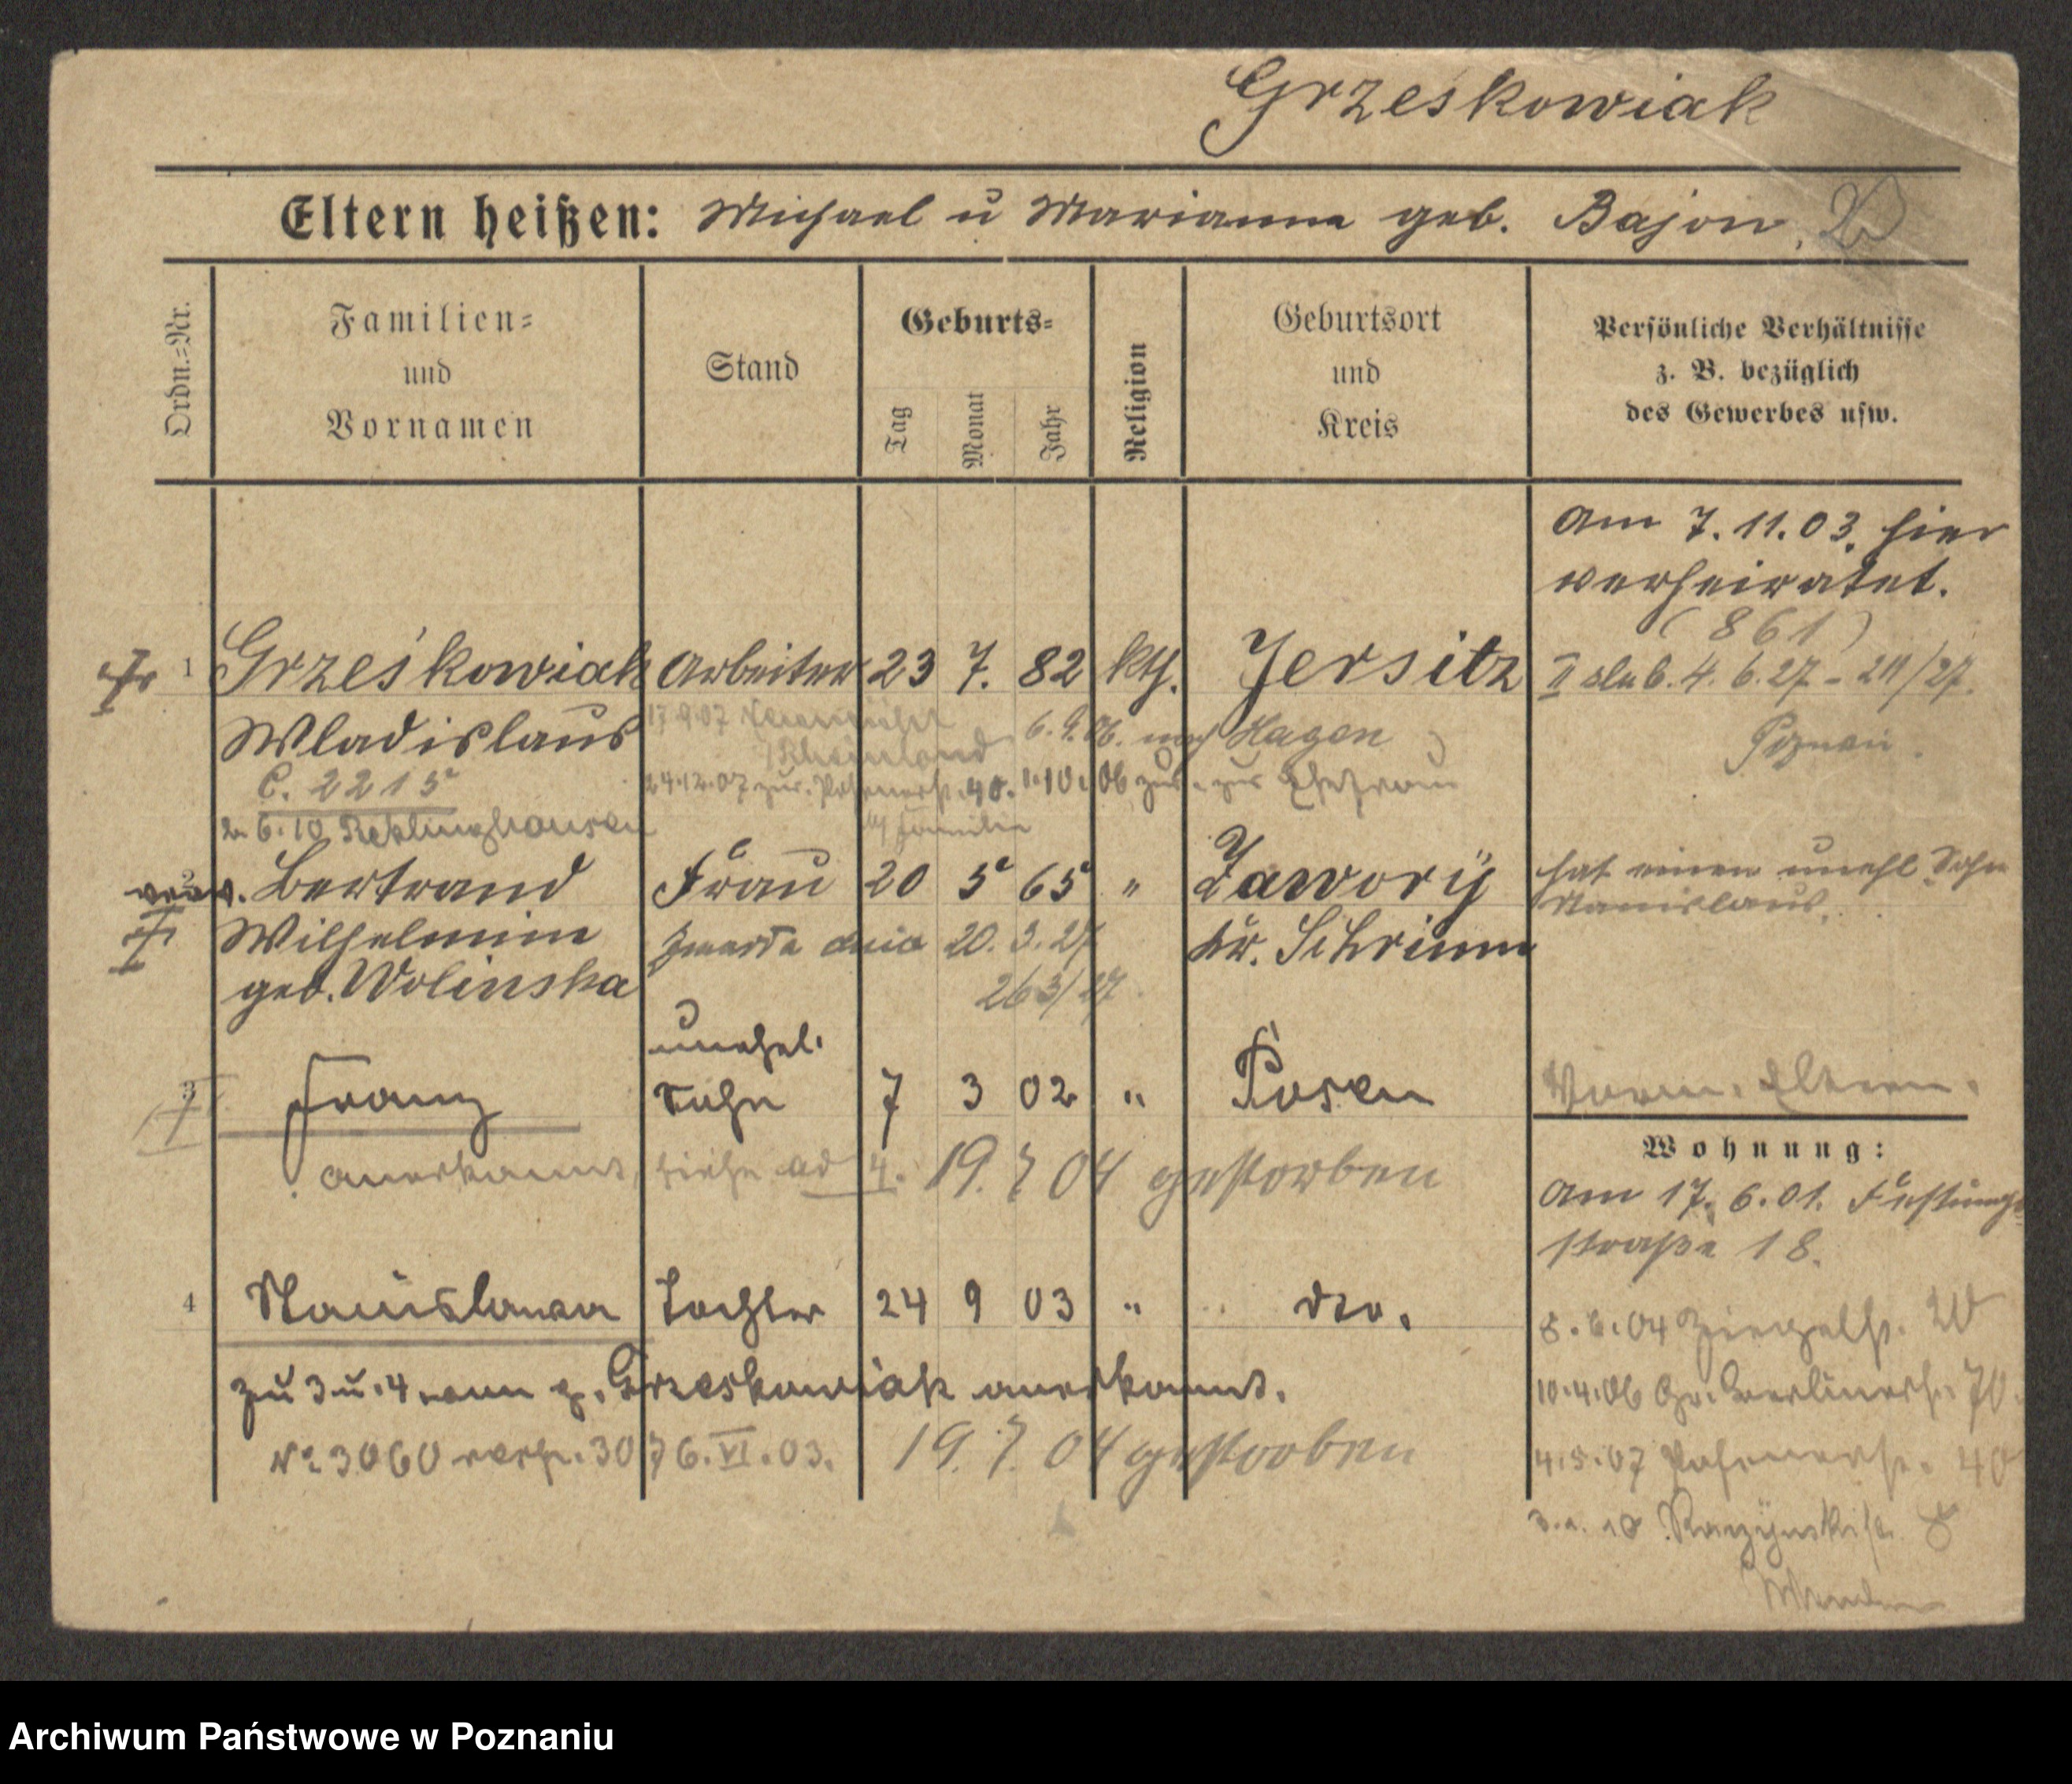 Grzeskowiak
Eltern heißen: Michael u Marianna geb. Bajon.
Ordn.=Nr.
Familien=
und
Vornamen
Stand
Geburts=
Tag
Monat
Jahr
Religion
Geburtsort
und
Kreis
Persönliche Verhältnisse
z. B. bezüglich
des Gewerbes usw.
Am 7.11.03. hier
verheiratet.
(861)
1 Grześkowiak Arbeiter 23 7. 82 kth. Jersitz
II slub. 4. 6. 27 - 211/27.
Poznań.
Wladislaus
17.9.07
Rheinland
6.9.06. nach Hagen
C. 2215
24.12.07 zur. Posenerst. 40. 1.10.06 zur. zur Ehefrau
6.10 Recklinghausen
Familie
2 verw. Bertrand Frau 20 5 65 " Zawory hat einen unehl Sohn
Stanislaus.
Wilhelmine zmarła dnia 20. 3. 27 Kr. Schrimm
geb. Wolinska 263/27.
unehel.
3 Franz Sohn 7 3 02 " Posen
Vorm. Eltern.
anerkannt, siehe ad 4. 19. 7 04 gestorben
Wohnung:
Am 17. 6. 01. Festungs
straße 18.
4 Stanislawa Tochter 24 9 03 " dto.
8.6.04 Ziegelst. 20
zu 3 u. 4 vom p. Grzeskowiak anerkannt.
10.4.06 Gr. Berlinerst. 70.
No 3060 verh. 3076.VI.03. 19. 7. 04 gestorben
4.5.07 Posenerst. 40
10 Raczynskist. 8
Archiwum Państwowe w Poznaniu